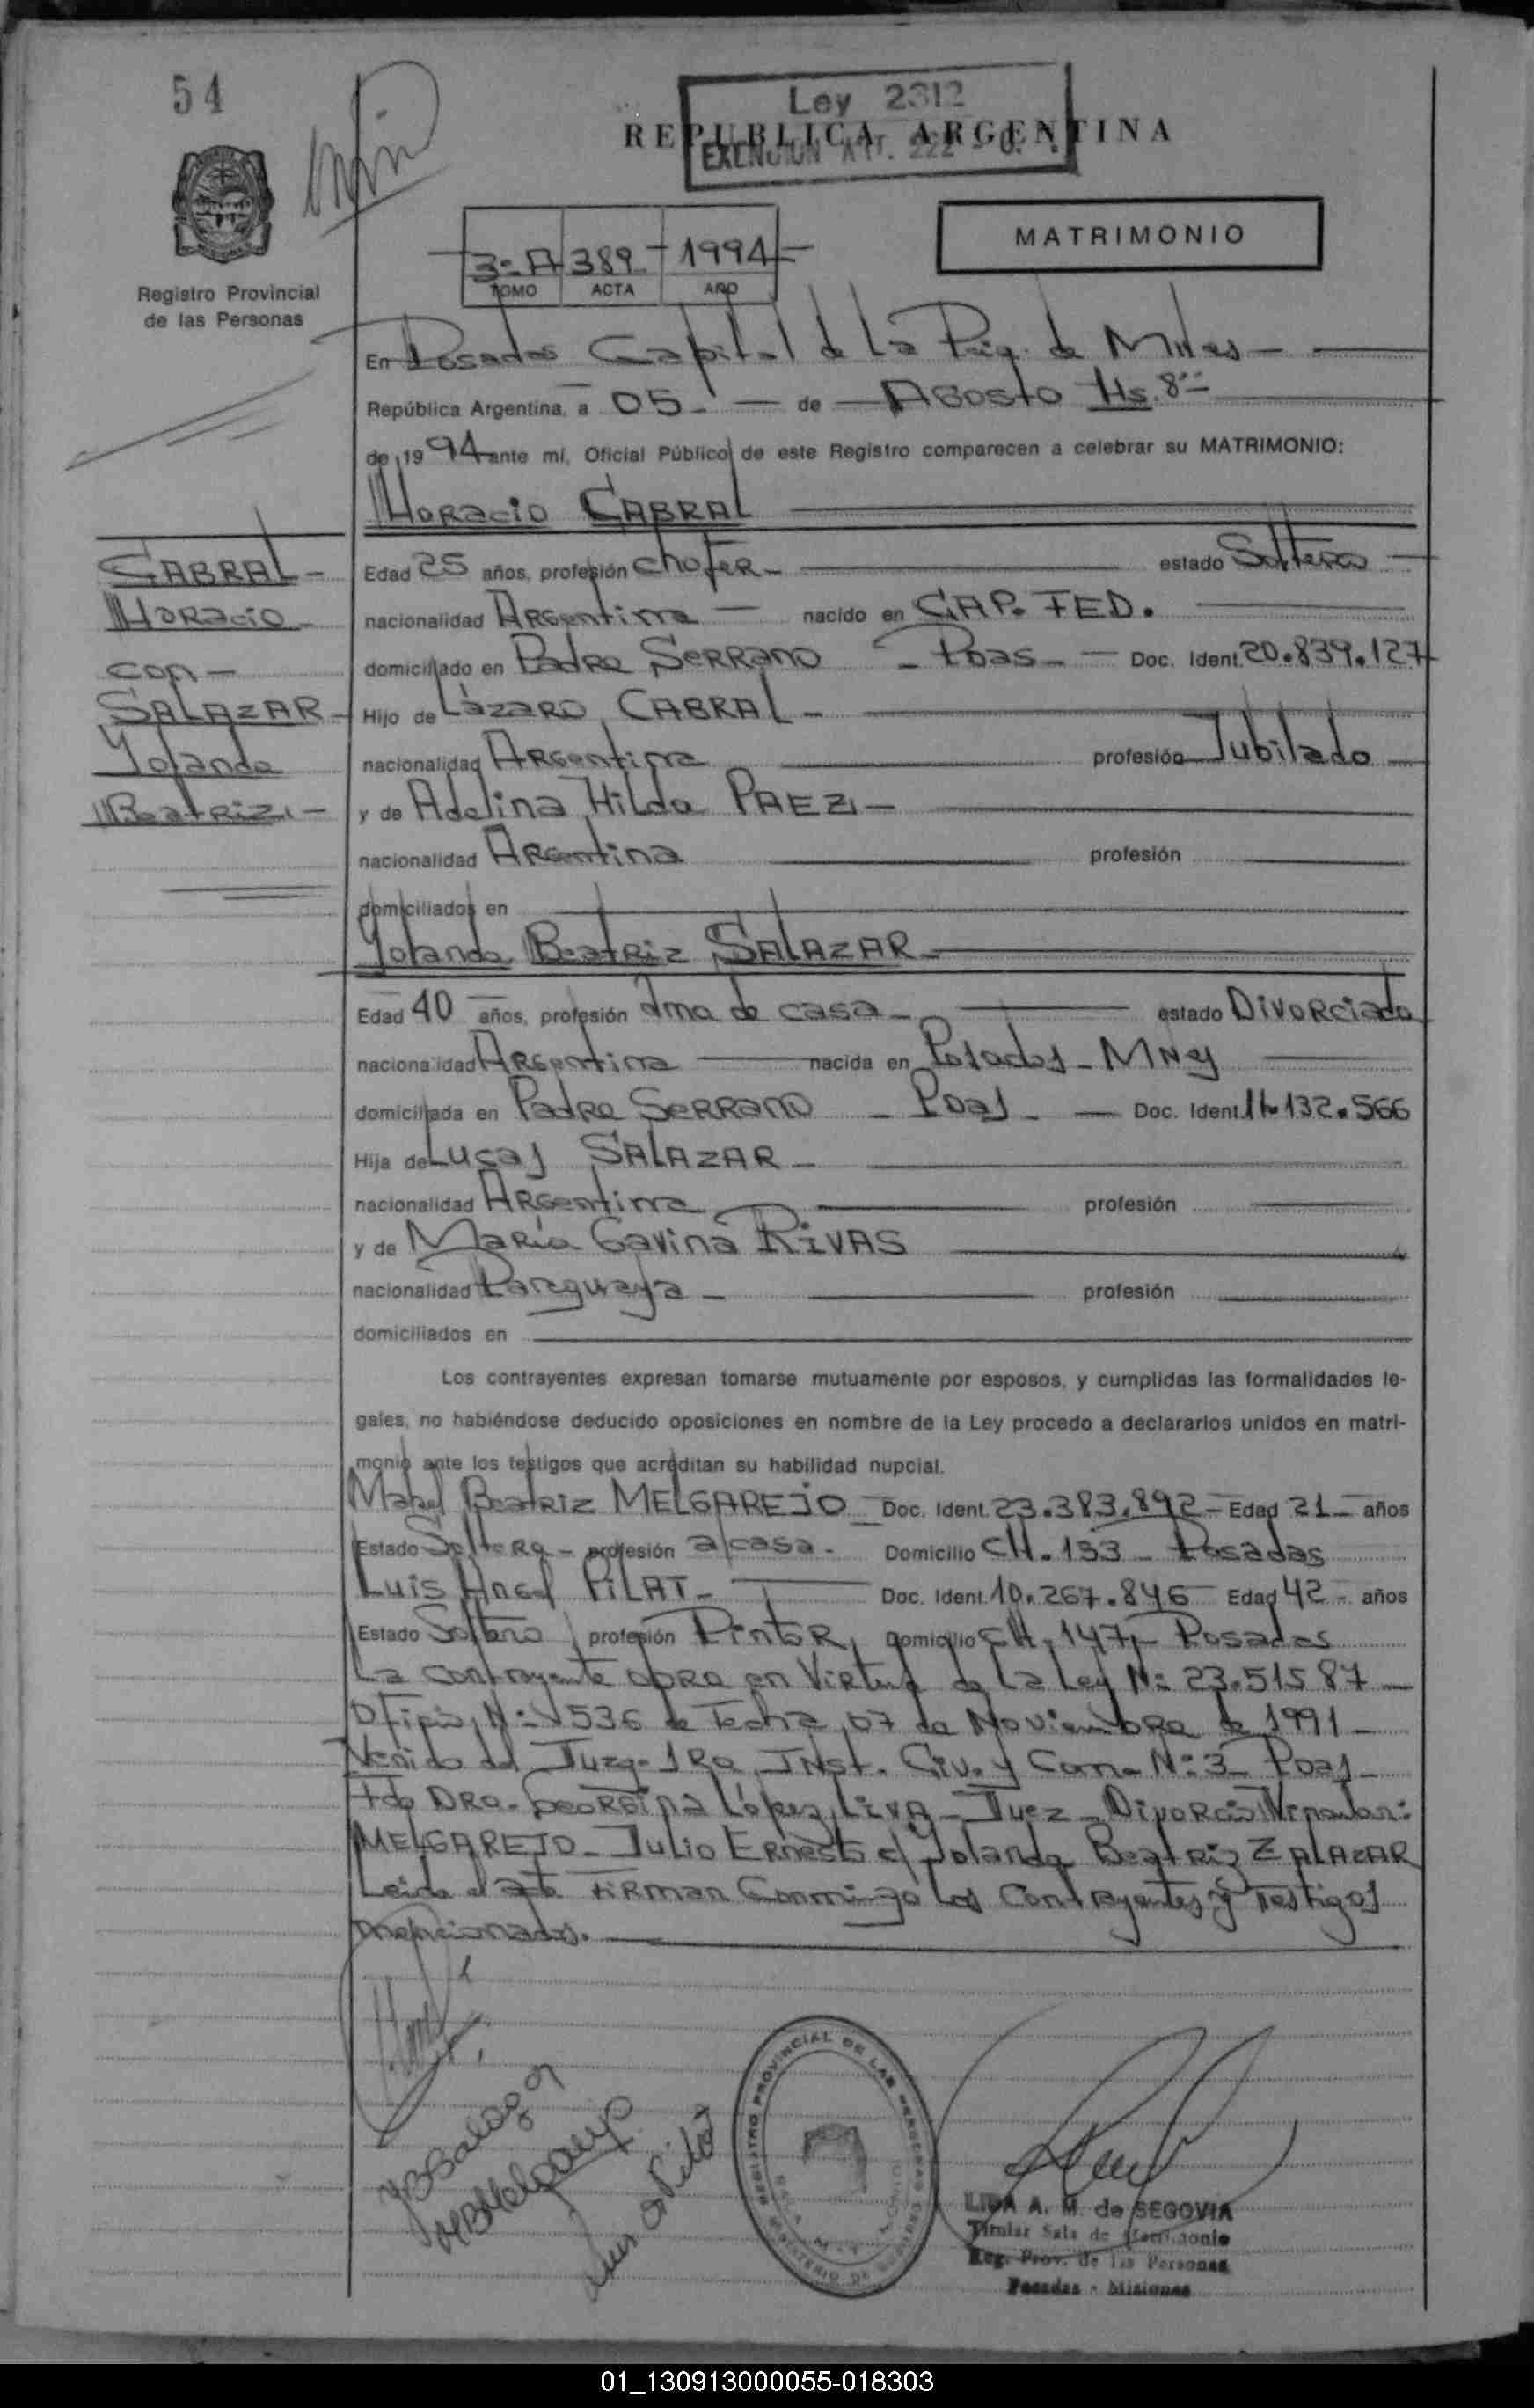 54
Ley 2312
REPUBLICA ARGENTINA
EXENCION ART. 222
MATRIMONIO
3-A 389 1994
TOMO ACTA AÑO
Registro Provincial
de las Personas
En Posadas Capital de La Pcia. de Mnes
República Argentina, a 05 de Agosto Hs. 8
de 1994 ante mí, Oficial Público de este Registro comparecen a celebrar su MATRIMONIO:
Horacio CABRAL
CABRAL
Horacio
con
SALAZAR
Yolanda
Beatriz
Edad 25 años, profesión chofer estado Soltero
nacionalidad Argentina nacido en CAP. FED.
domiciliado en Padre Serrano - Pdas - Doc. Ident. 20.839.127
Hijo de Lázaro CABRAL
nacionalidad Argentina profesión Jubilado
y de Adelina Hilda PAEZ
nacionalidad Argentina profesión
domiciliados en
Yolanda Beatriz SALAZAR
Edad 40 años, profesión Ama de casa estado Divorciada
nacionalidad Argentina nacida en Posadas - Mnes
domiciliada en Padre Serrano - Pdas - Doc. Ident. 11.132.566
Hija de Lucas SALAZAR
nacionalidad Argentina profesión
y de María Gavina RIVAS
nacionalidad Paraguaya profesión
domiciliados en
Los contrayentes expresan tomarse mutuamente por esposos, y cumplidas las formalidades le-
gales, no habiéndose deducido oposiciones en nombre de la Ley procedo a declararlos unidos en matri-
monio ante los testigos que acreditan su habilidad nupcial.
Mabel Beatriz MELGAREJO Doc. Ident. 23.383.892 Edad 21 años
Estado Soltera profesión a/casa Domicilio CH. 153 - Posadas
Luis Angel PILAT Doc. Ident. 10.267.846 Edad 42 años
Estado Soltero profesión Pintor Domicilio CH. 147 - Posadas
La contrayente obra en Virtud de la Ley N: 23.515 87
Oficio N: 1536 de fecha 07 de Noviembre de 1991
Venido del Juzg. 1Ra INst. Civ. y Com. N: 3 Pdas
Fdo DRa. Georgina López LIVA - Juez - Divorcio Vincular:
MELGAREJO - Julio Ernesto c/ Yolanda Beatriz ZALAZAR
Leida el acta firman Conmigo los Contrayentes y Testigos
mencionados.
YBSalazar
MBMelgarejo
Luis A Pilat
REGISTRO PROVINCIAL DE LAS PERSONAS
LIDA A. M. de SEGOVIA
Titular Sala de Matrimonio
Reg. Prov. de las Personas
Posadas - Misiones
01_130913000055-018303